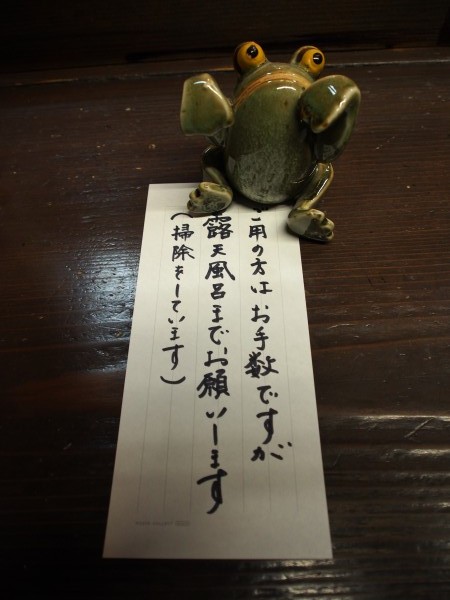 ご用の方はお手数ですが
露天風呂までお願いします
(掃除をしています)